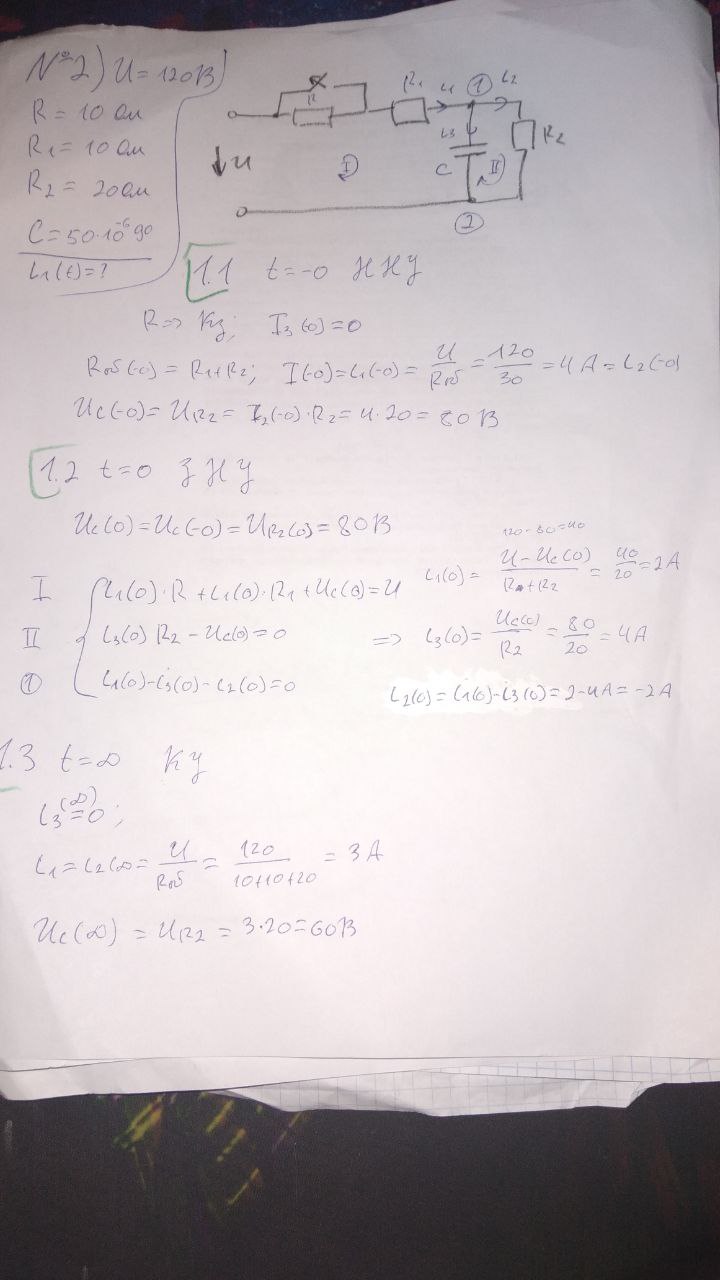 №2) U = 120В
R = 10 Ом
R1 = 10 Ом
R2 = 20 Ом
C = 50·10⁻⁶
i1(t) = ?
R
R1 i1 1 i2
i3 R2
U I C II
2
1.1 t = -0 ННУ
R => КЗ; I3(0) = 0
Rоб(-0) = R1+R2; I(-0) = i1(-0) = U/Rоб = 120/30 = 4A = i2(-0)
Uc(-0) = UR2 = I2(-0)·R2 = 4·20 = 80В
1.2 t = 0 ЗНУ
Uc(0) = Uc(-0) = UR2(0) = 80В
120-80=40
I i1(0)·R + i1(0)·R1 + Uc(0) = U i1(0) = U-Uc(0)/R+R2 = 40/20 = 2A
II i3(0) R2 - Uc(0) = 0 => i3(0) = Uc(0)/R2 = 80/20 = 4A
1 i1(0) - i3(0) - i2(0) = 0 i2(0) = i1(0) - i3(0) = 2-4A = -2A
1.3 t = ∞ КУ
i3(∞) = 0;
i1 = i2(∞ = U/Rоб = 120/10+10+20 = 3A
Uc(∞) = UR2 = 3·20 = 60В